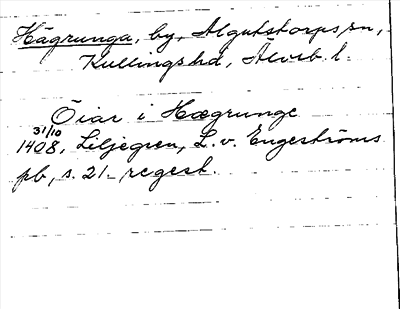 Hägrunga, by, Algutstorps sn,
Kullings hd, Älvsb. l.
Öiar i Hægrunge
31/10
1408, Liljegren, L. v. Engeströms
pb, s. 21 - regest.